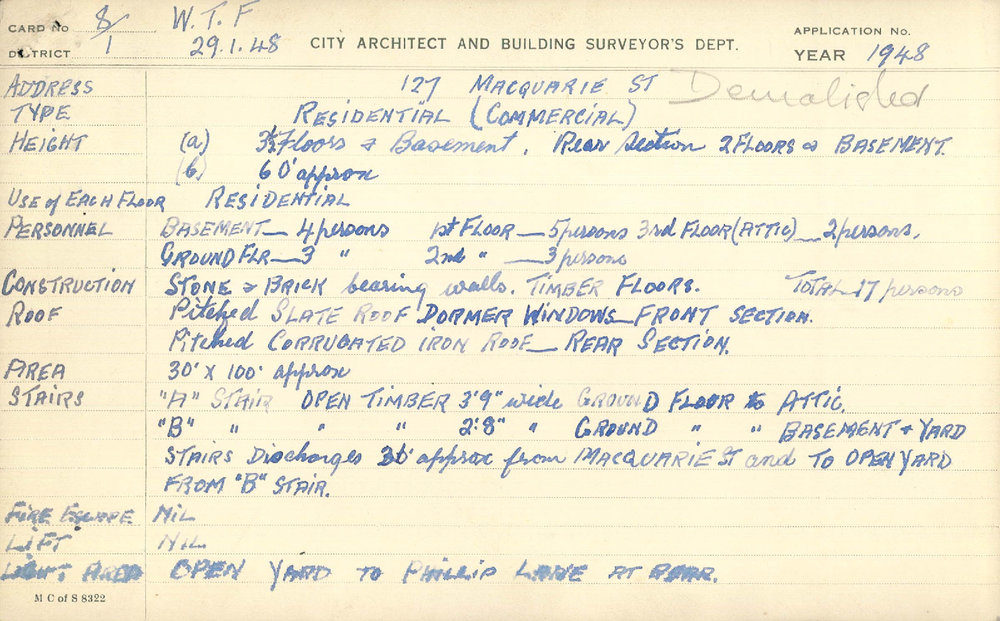 CARD No 8/1 W.T.F APPLICATION No.
DISTRICT 29.1.48 CITY ARCHITECT AND BUILDING SURVEYOR'S DEPT. YEAR 1948
ADDRESS 127 MACQUARIE ST Demolished
TYPE RESIDENTIAL (COMMERCIAL)
HEIGHT (a) 3½ Floors & Basement. Rear Section 2 FLOORS & BASEMENT.
(b) 60' approx
USE of EACH FLOOR RESIDENTIAL
PERSONNEL BASEMENT — 4 persons 1st FLOOR — 5 persons 3rd FLOOR (ATTIC) — 2 persons.
GROUND FLR — 3 " 2nd " — 3 persons
CONSTRUCTION STONE & BRICK bearing walls. TIMBER FLOORS. TOTAL 17 persons
ROOF Pitched SLATE ROOF DORMER WINDOWS — FRONT SECTION.
Pitched CORRUGATED IRON ROOF — REAR SECTION.
AREA 30' x 100' approx
STAIRS "A" STAIR OPEN TIMBER 3'9" wide GROUND FLOOR to ATTIC.
"B" " " " 2'8" " GROUND " " BASEMENT & YARD
STAIRS Discharges 30' approx from MACQUARIE ST and TO OPEN YARD
FROM "B" STAIR.
FIRE ESCAPE NIL
LIFT NIL
LIGHT AREA OPEN YARD TO PHILLIP LANE AT REAR.
M C of S 8322